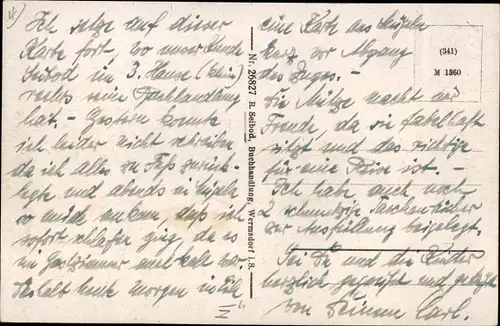 Ich setze auf dieser
Karte fort, wo unser Kunde
Seibod im 3. Hause (klein)
rechts seine Buchhandlung
hat. – Gestern konnte
ich leider nicht schreiben
da ich alles zu Fuß zurück-
legte und abends in
so müde ankam, daß ich
sofort schlafen ging, da es
im Gastzimmer auch kalt war.
Deshalb heute morgen in Eile
II
eine Karte aus
kurz vor Abgang
des Zuges. –
Die Mütze macht mir
Freude, da sie fabelhaft
sitzt und das richtige
für eine Reise ist. –
Ich habe auch noch
2 schmutzige Taschentücher
zur beigelegt.
Sei Du und die Kinder
herzlich gegrüßt und geküßt
von Deinem Carl.
Nr. 26827 R. Seibod, Buchhandlung, Wermsdorf i. S.
(341)
M 1360